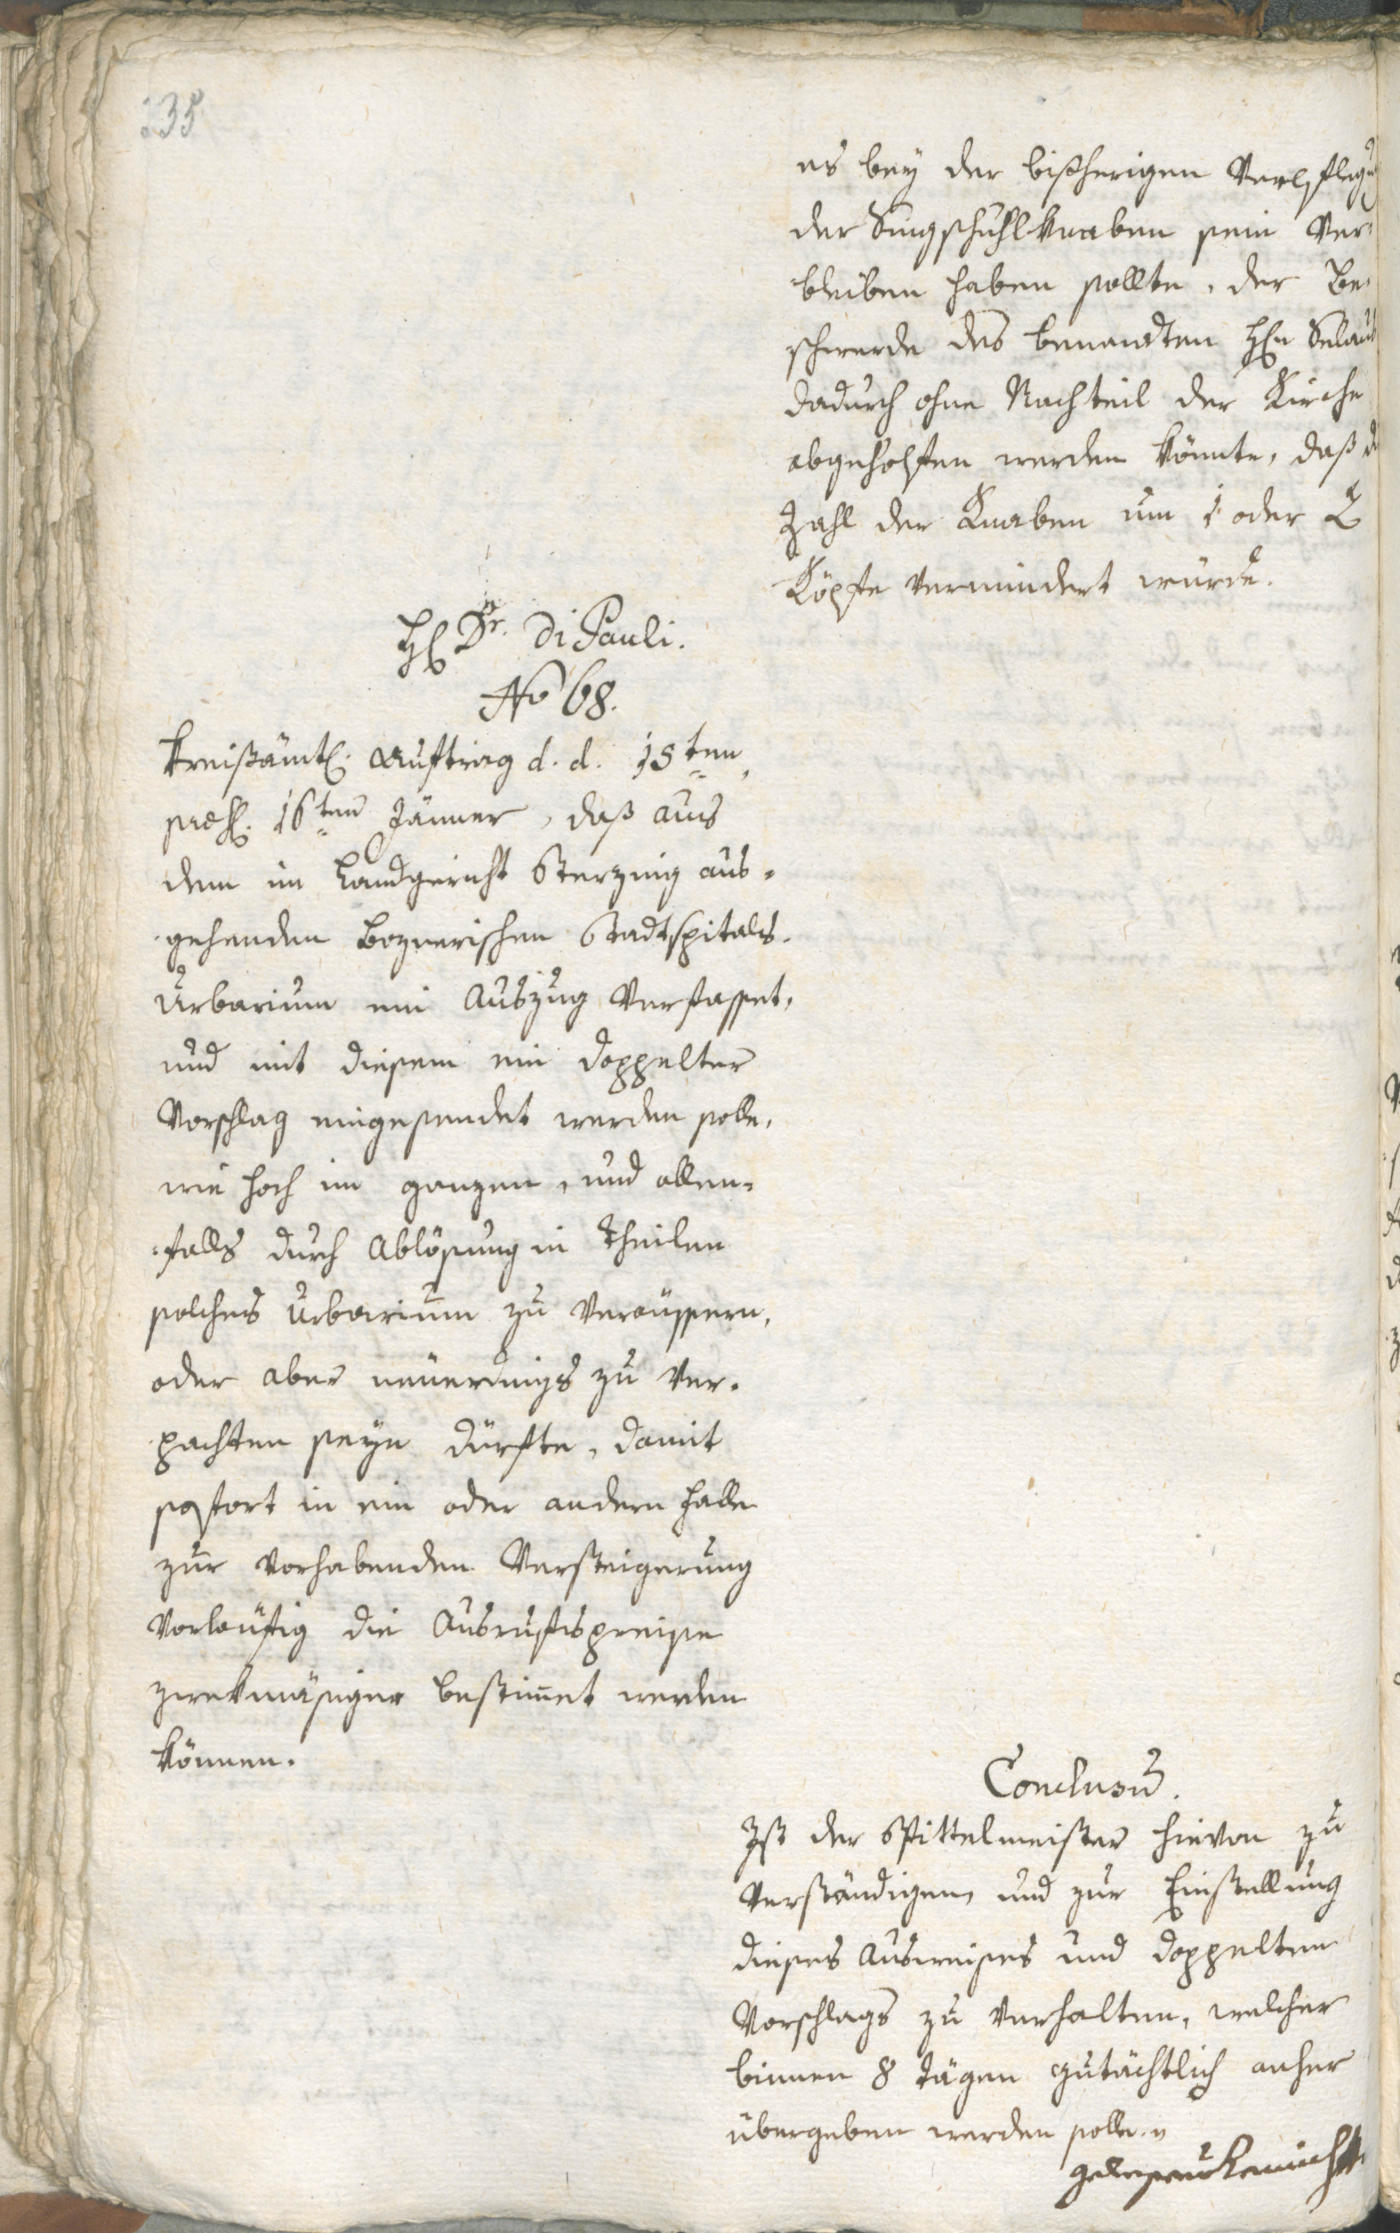 235
es bey der bißherigen Verpflegu
der Singschuhlknaben sein Ver¬
bleiben haben sollte, der Be¬
schwerde des benandten H
dadurch ohne Nachteil der Kirche
abgeholfen werden könnte, daß d
Zahl der Knaben um 1 oder 2
Köpfe vermindert würde.
H Dr. Di Pauli.
No 68.
Kreißämtl. Auftrag d. d. 15ten,
præs. 16ten Jänner, daß aus
dem im Landgericht Sterzing aus¬
gehenden Boznerischen Stadtspitals¬
Urbarium ein Auszug verfasset,
und mit diesem ein doppelter
Vorschlag eingesendet werden solle,
wie hoch im ganzen, und allen¬
falls durch Ablösung in Theilen
solches Urbarium zu veräussern,
oder aber neuerdings zu ver¬
pachten seyn dürfte, damit
sofort in ein oder andern Falle
zur vorhabenden Versteigerung
vorläufig die Ausrufspreise
zwekmäsiger bestimet werden
können.
Conclusum.
Ist der Spittelmeister hievon zu
verständigen, und zur Einstellung
dieses Ausweises und doppelten
Vorschlags zu verhalten, welcher
binnen 8 Tägen gutächtlich anher
übergeben werden solle.